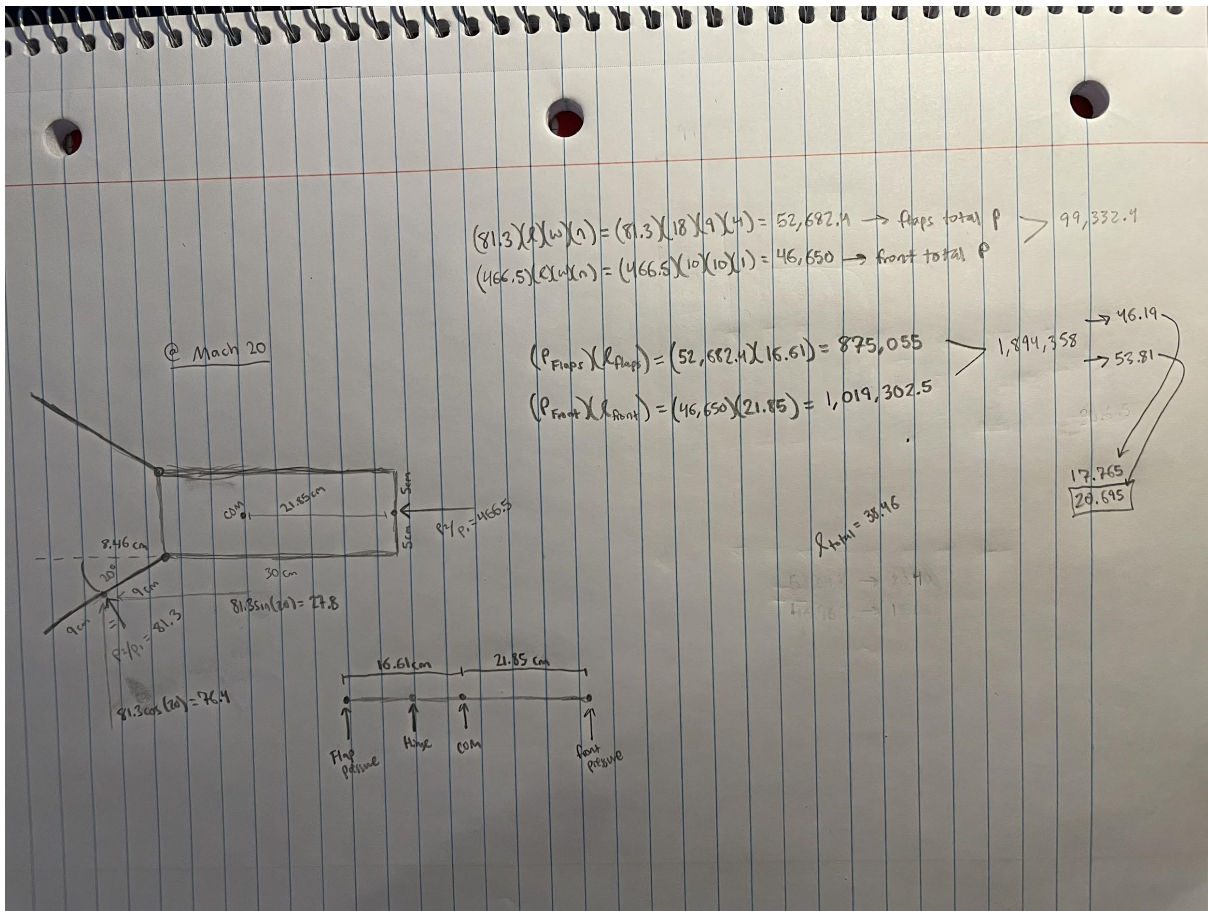 (81.3)(l)(w)(n) = (81.3)(18)(9)(4) = 52,682.4 → flaps total P > 99,332.4
(466.5)(l)(w)(n) = (466.5)(10)(10)(1) = 46,650 → front total P
@ Mach 20
(P Flaps)(l flaps) = (52,682.4)(16.61) = 875,055 > 1,894,358 → 46.19
(P Front)(l front) = (46,650)(21.85) = 1,019,302.5 → 53.81
17.765
20.695
l total = 38.46
COM
21.85cm
5cm
5cm
P2/P1 = 466.5
8.46 cm
20°
9cm
9cm
30 cm
P2/P1 = 81.3
81.3sin(20) = 27.8
81.3cos(20) = 76.4
16.61cm
21.85 cm
Flap pressure
Hinge
COM
front pressure